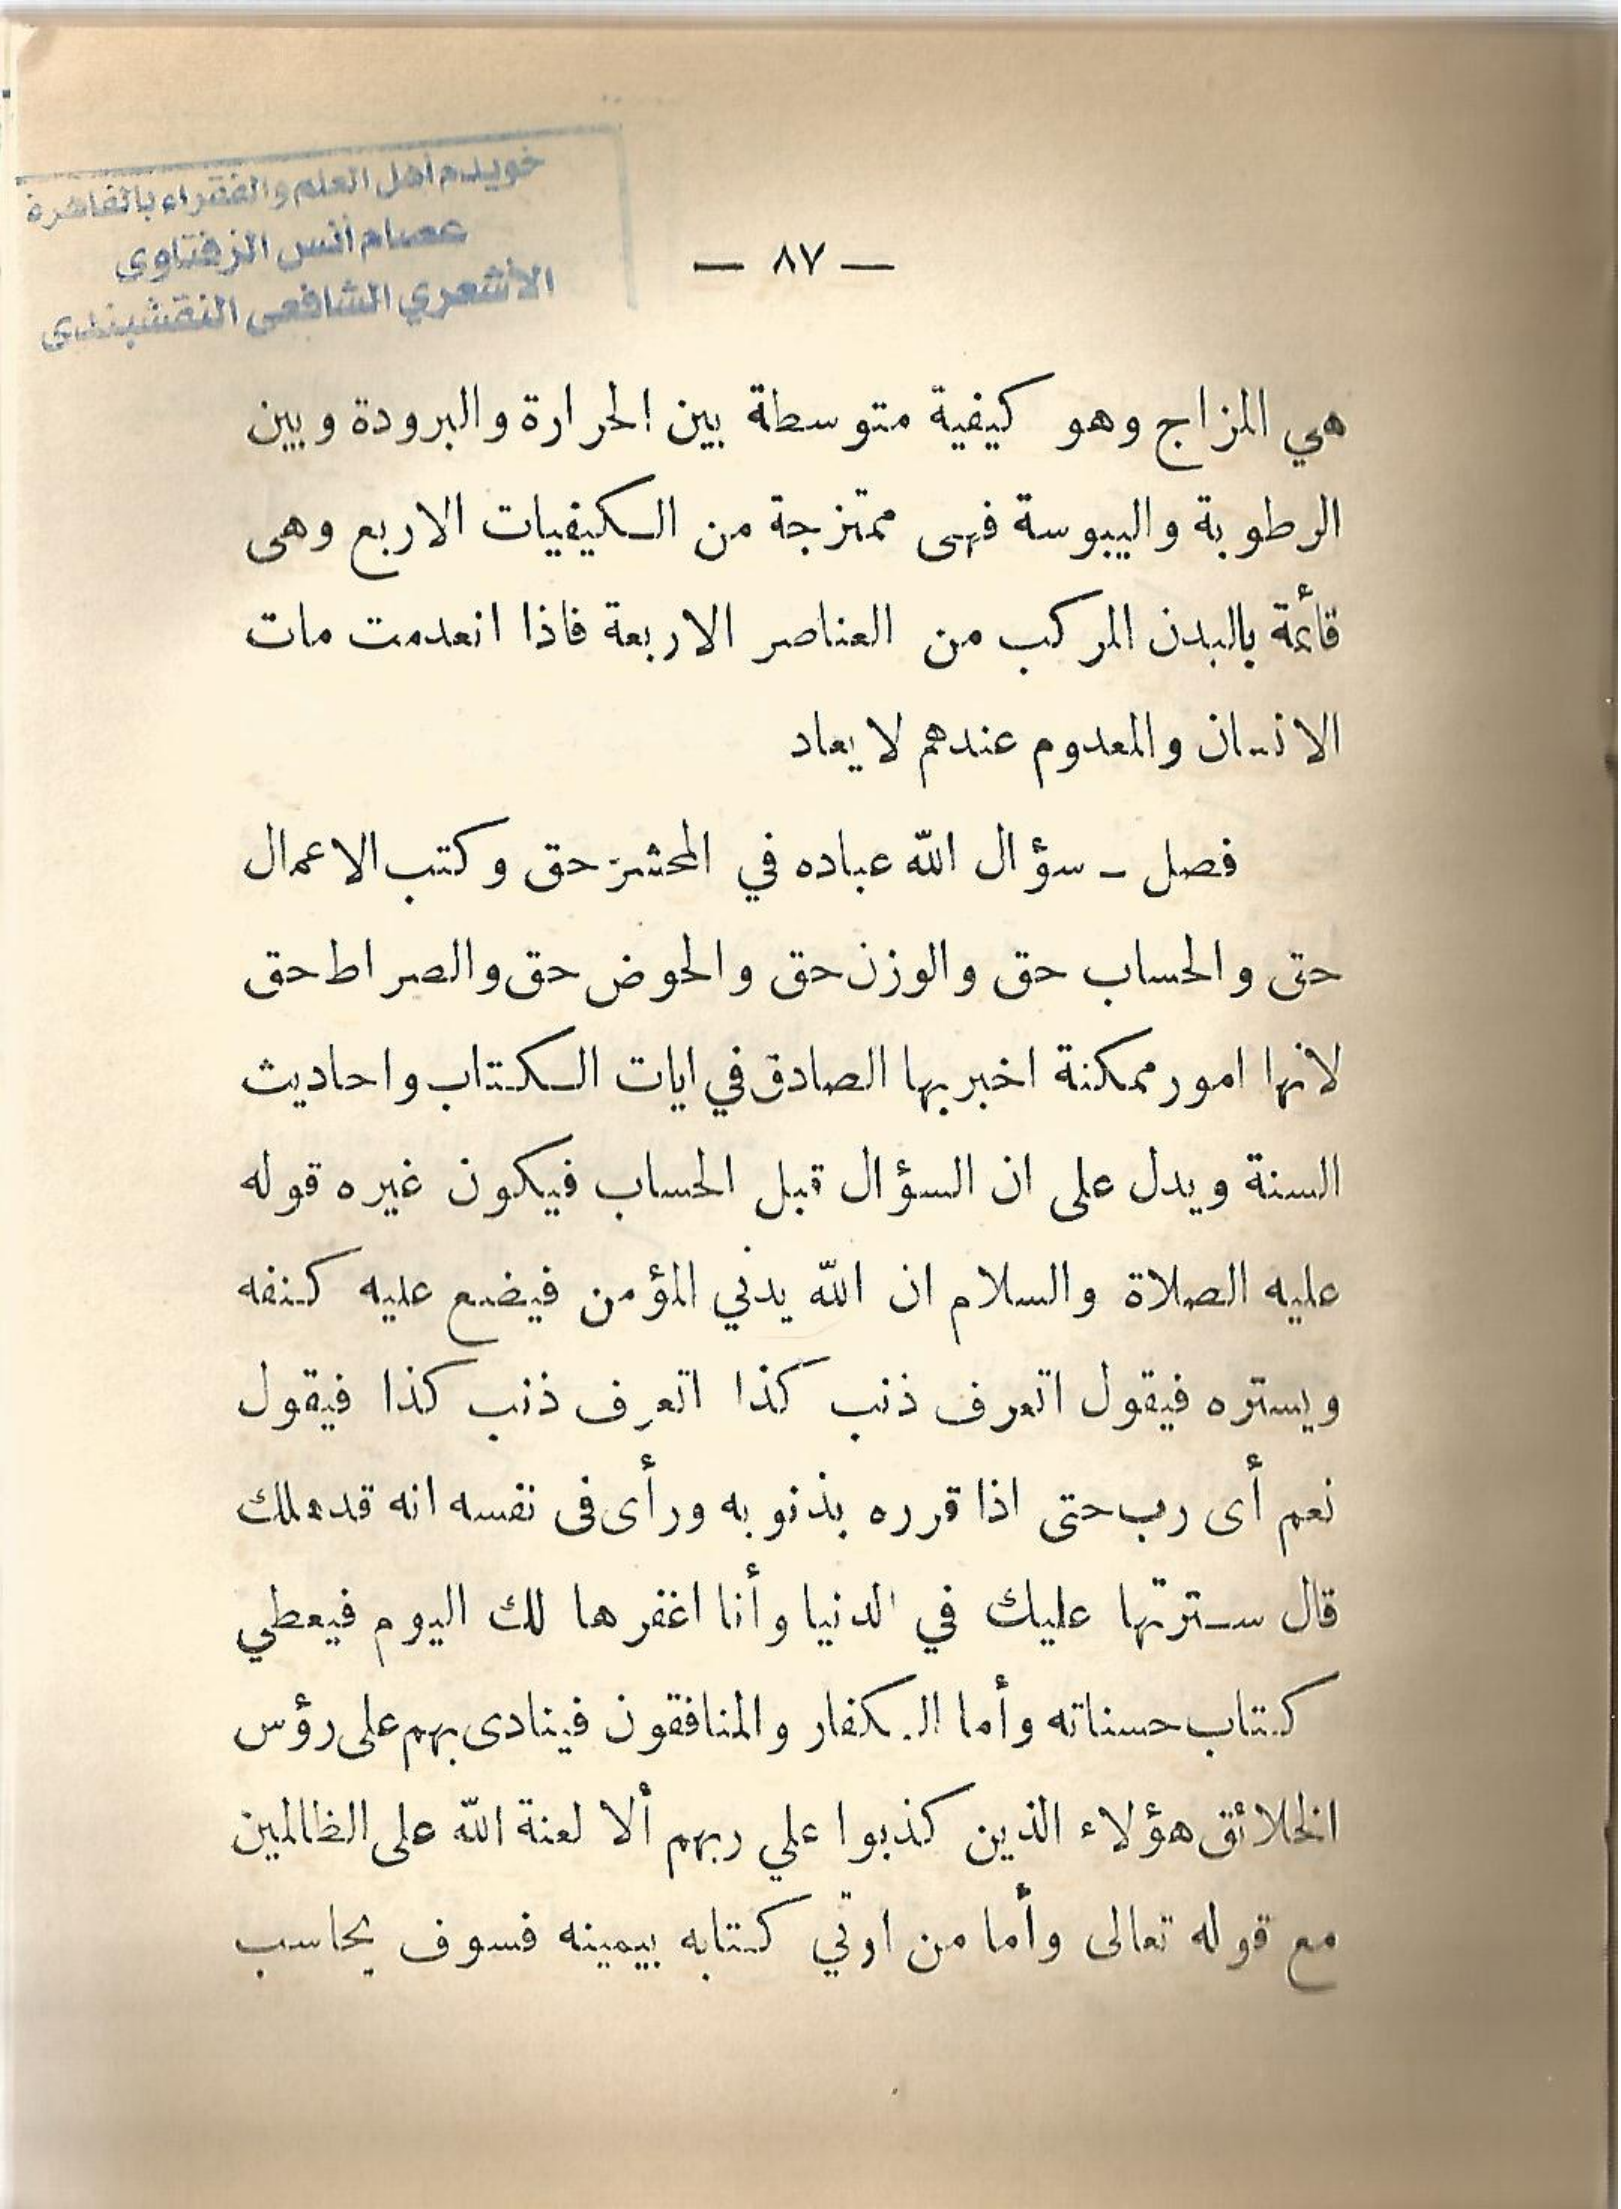 خويدم أهل العلم والفقراء بالقاهرة
عصام أنس الزفتاوى
الأشعري الشافعى النقشبندى
— ٨٧ —
هي المزاج وهو كيفية متوسطة بين الحرارة والبرودة وبين
الرطوبة واليبوسة فهى ممتزجة من الكيفيات الاربع وهى
قائمة بالبدن المركب من العناصر الاربعة فاذا انعدمت مات
الانسان والمعدوم عندهم لا يعاد
فصل ـ سؤال الله عباده في المحشر حق وكتب الاعمال
حق والحساب حق والوزن حق والحوض حق والصراط حق
لانها امور ممكنة اخبر بها الصادق في ايات الكتاب واحاديث
السنة ويدل على ان السؤال قبل الحساب فيكون غيره قوله
عليه الصلاة والسلام ان الله يدني المؤمن فيضع عليه كنفه
ويستره فيقول اتعرف ذنب كذا اتعرف ذنب كذا فيقول
نعم أى رب حتى اذا قرره بذنوبه ورأى فى نفسه انه قد هلك
قال سترتها عليك في الدنيا وأنا اغفرها لك اليوم فيعطي
كتاب حسناته وأما الكفار والمنافقون فينادى بهم على رؤس
الخلائق هؤلاء الذين كذبوا علي ربهم ألا لعنة الله على الظالمين
مع قوله تعالى وأما من اوتي كتابه بيمينه فسوف يحاسب